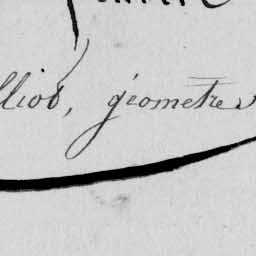 lliot, géomètre